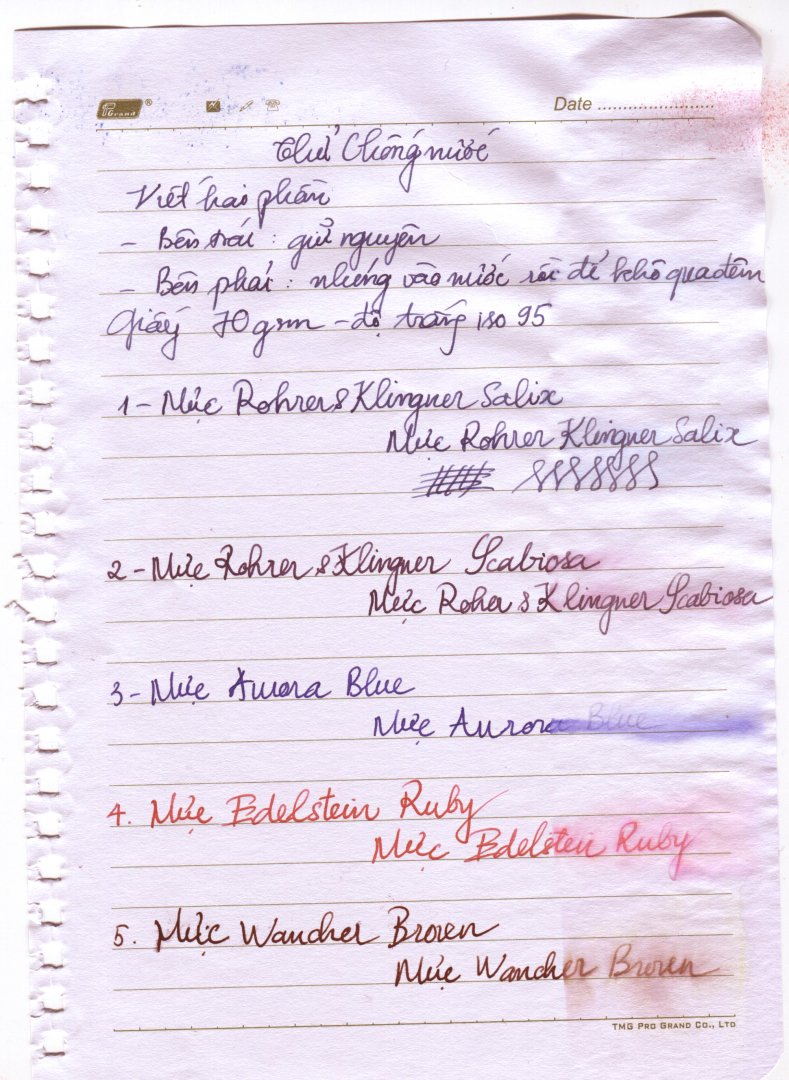 PGrand ®
Date ........................
Thử Chống nước
Viết hai phần
- Bên trái : giữ nguyên
- Bên phải : nhúng vào nước rồi để khô qua đêm
Giấy 70 gsm - độ trắng iso 95
1 - Mực Rohrer & Klingner Salix
Mực Rohrer Klingner Salix
2 - Mực Rohrer & Klingner Scabiosa
Mực Roher & Klingner Scabiosa
3 - Mực Aurora Blue
Mực Aurora Blue
4. Mực Edelstein Ruby
Mực Edelstein Ruby
5. Mực Wancher Brown
Mực Wancher Brown
TMG PRO GRAND CO., LTD